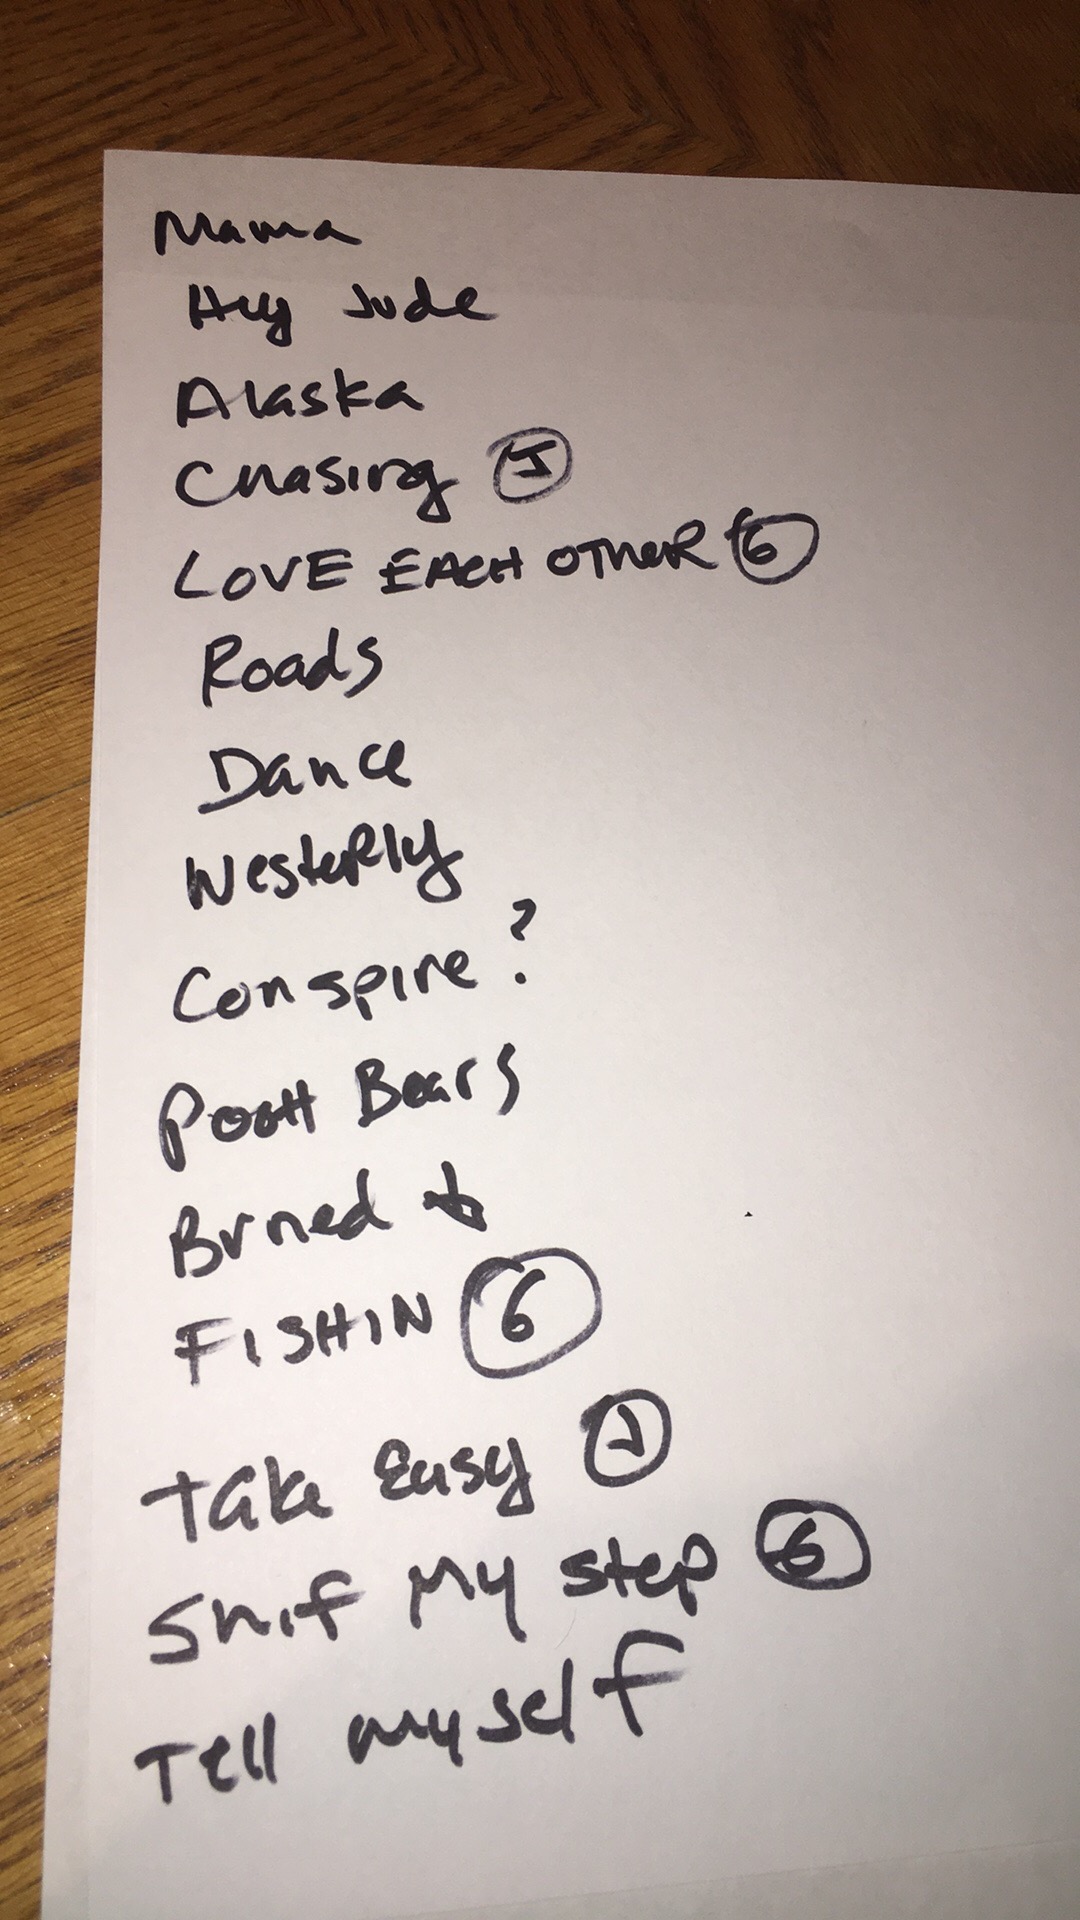 Mama
Hey Jude
Alaska
Chasing J
LOVE EACH OTHER G
Roads
Dance
Westerly
Conspire ?
Pooh Bears
Burned
FISHIN G
Take Easy J
My step G
Tell myself